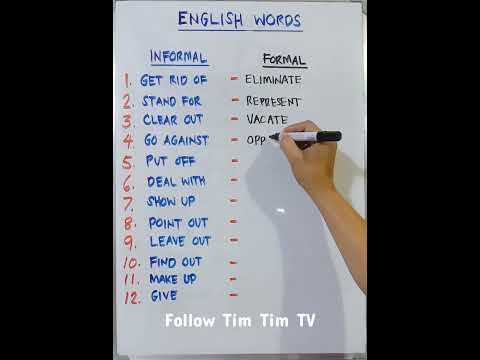 ENGLISH WORDS
INFORMAL FORMAL
1. GET RID OF - ELIMINATE
2. STAND FOR - REPRESENT
3. CLEAR OUT - VACATE
4. GO AGAINST - OPP
5. PUT OFF -
6. DEAL WITH -
7. SHOW UP -
8. POINT OUT -
9. LEAVE OUT -
10. FIND OUT -
11. MAKE UP -
12. GIVE -
Follow Tim Tim TV